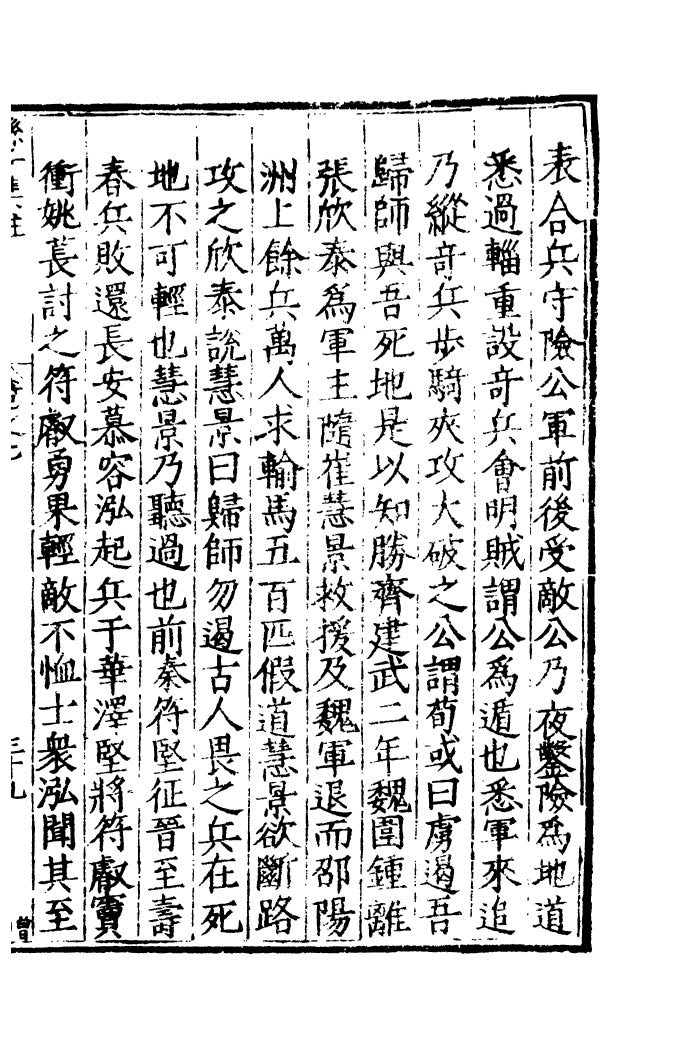 表合兵守險公軍前後受敵公乃夜鑿險爲地道
悉過輜重設竒兵會明賊謂公爲遁也悉軍來追
乃縱竒兵步騎夾攻大破之公謂荀或曰虜遏吾
歸師與吾死地是以知勝齊建武二年魏圍鍾離
張欣泰爲軍主隨崔慧景救援及魏軍退而邵陽
洲上餘兵萬人求輸馬五百匹假道慧景欲斷路
攻之欣泰說慧景曰歸師勿遏古人畏之兵在死
地不可輕也慧景乃聽過也前秦符堅征晉至壽
春兵敗還長安慕容泓起兵于華澤堅將符叡竇
衝姚萇討之符叡勇果輕敵不恤士衆泓聞其至